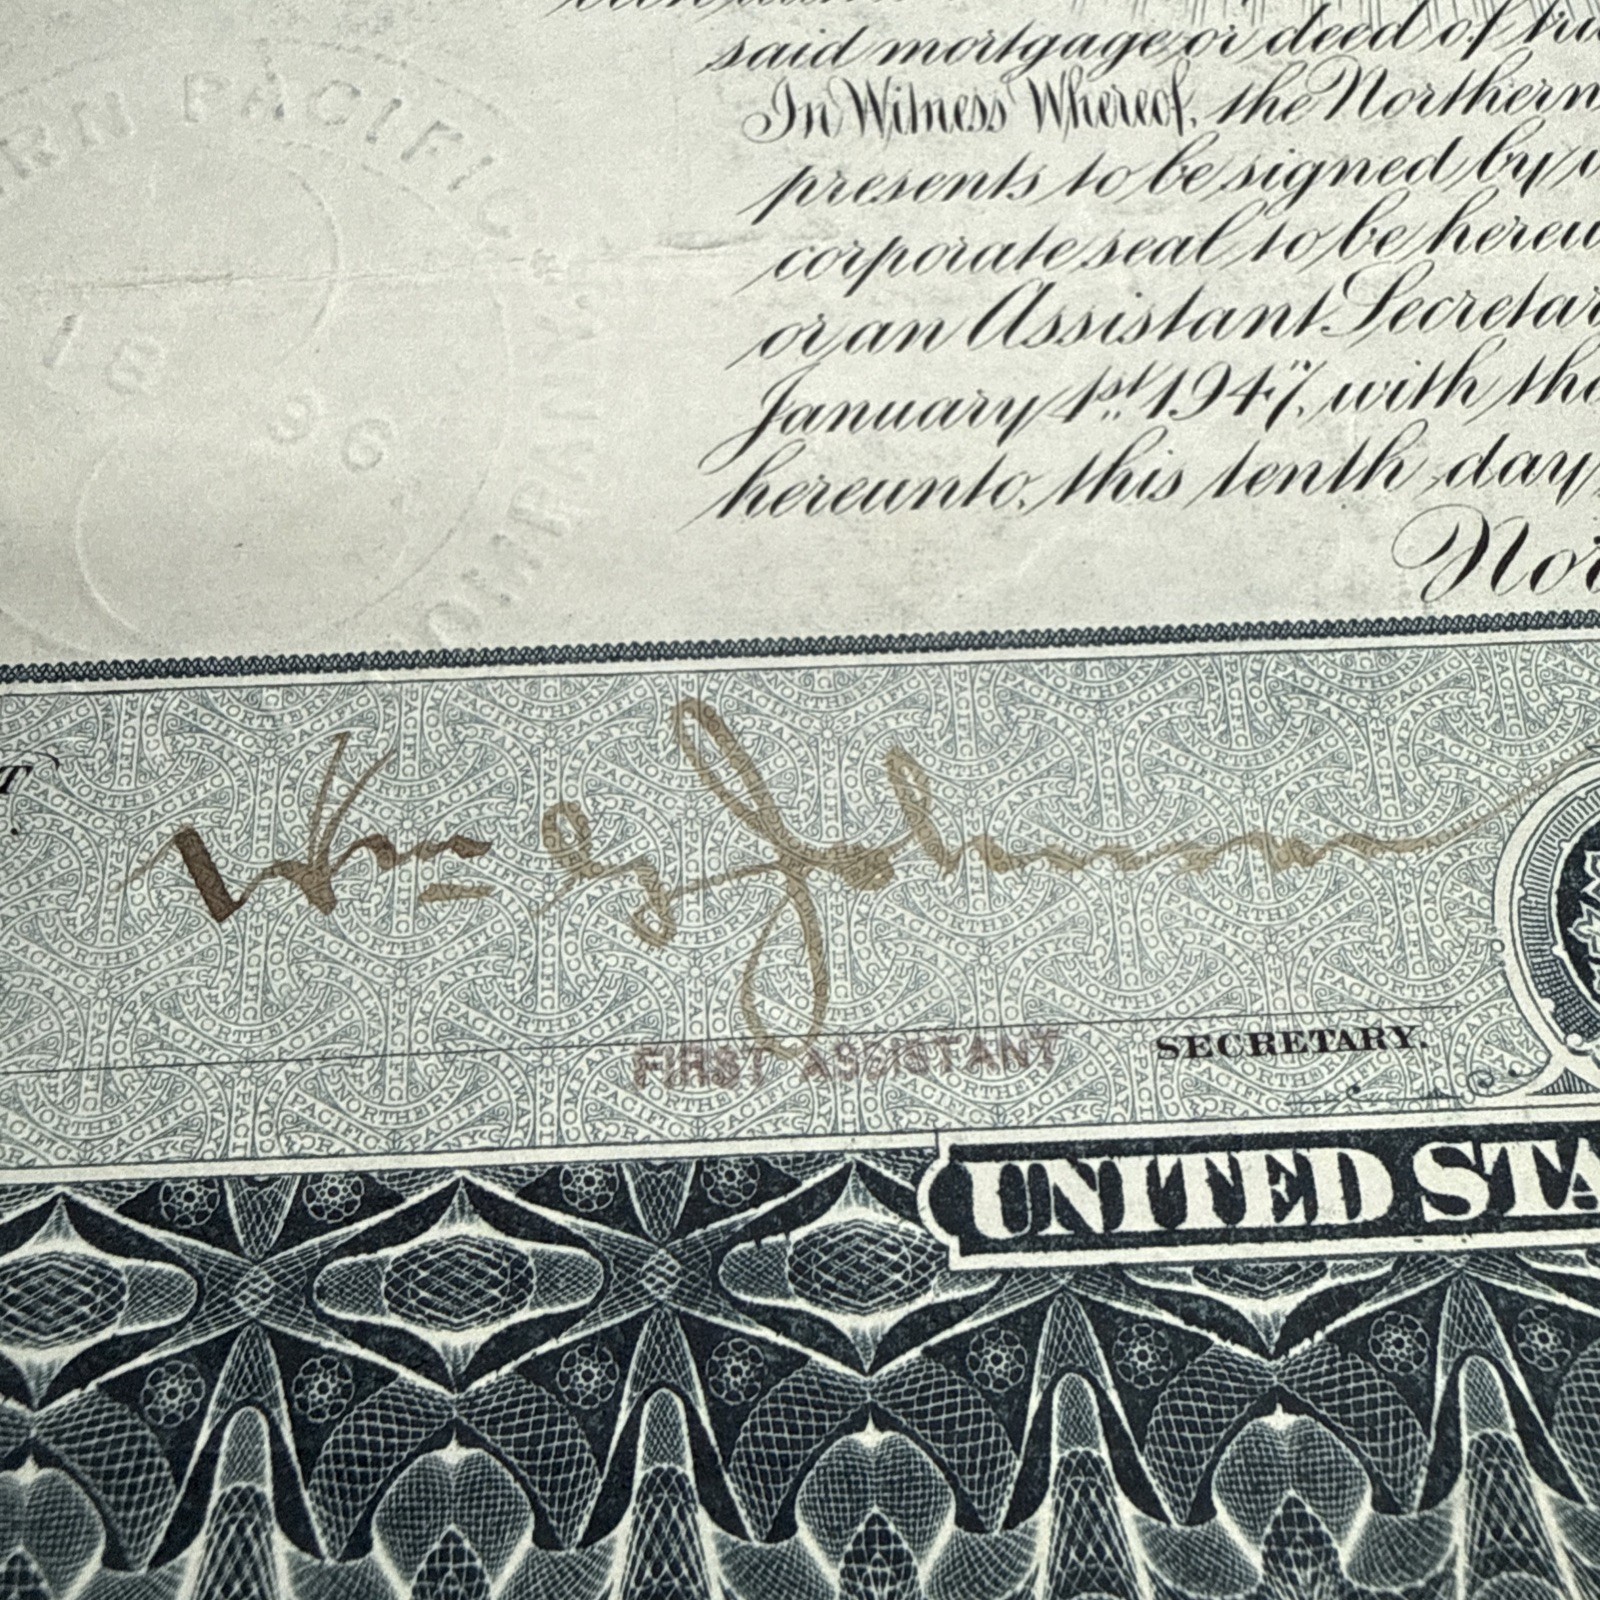 said mortgage or deed of
In Witness Whereof, the Northern
presents to be signed by
corporate seal to be
or an Assistant
January 1st 1947, with
hereunto, this tenth day
RN PACIFIC
COMPANY
1896
Wm G Johnson
FIRST ASSISTANT SECRETARY.
UNITED